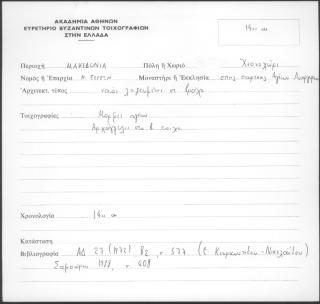 ΑΚΑΔΗΜΙΑ ΑΘΗΝΩΝ
ΕΥΡΕΤΗΡΙΟ ΒΥΖΑΝΤΙΝΩΝ ΤΟΙΧΟΓΡΑΦΙΩΝ
ΣΤΗΝ ΕΛΛΑΔΑ
19ος αι
Περιοχή ΜΑΚΕΔΟΝΙΑ Πόλη ή Χωριό Χιονοχώρι
Νομός ή Ἐπαρχία Ν. ΣΕΡΡΩΝ Μοναστήρι ή Ἐκκλησία Αγίων
Ἀρχιτεκτ. τύπος ναός σε βράχο
Τοιχογραφίες Μορφές αγίων
Αρχάγγελοι στο β. τοίχο
Χρονολογία 19ος αι
Κατάσταση
Βιβλιογραφία ΑΔ 27 (1972) Β2, σ. 577 (Ε. Κουρκουτίδου - Νικολαΐδου)
Σαμσάρης 1978, σ. 408